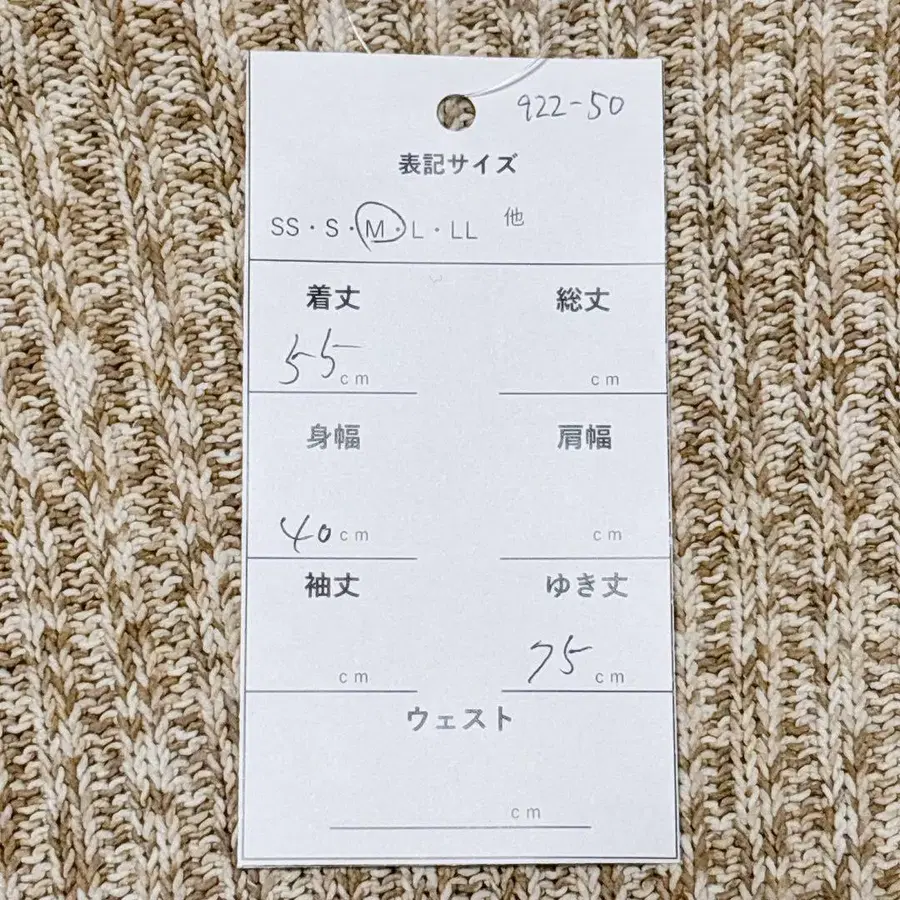 922-50
表記サイズ
SS・S・M・L・LL 他
着丈 総丈
55cm cm
身幅 肩幅
40cm cm
袖丈 ゆき丈
cm 75cm
ウェスト
cm